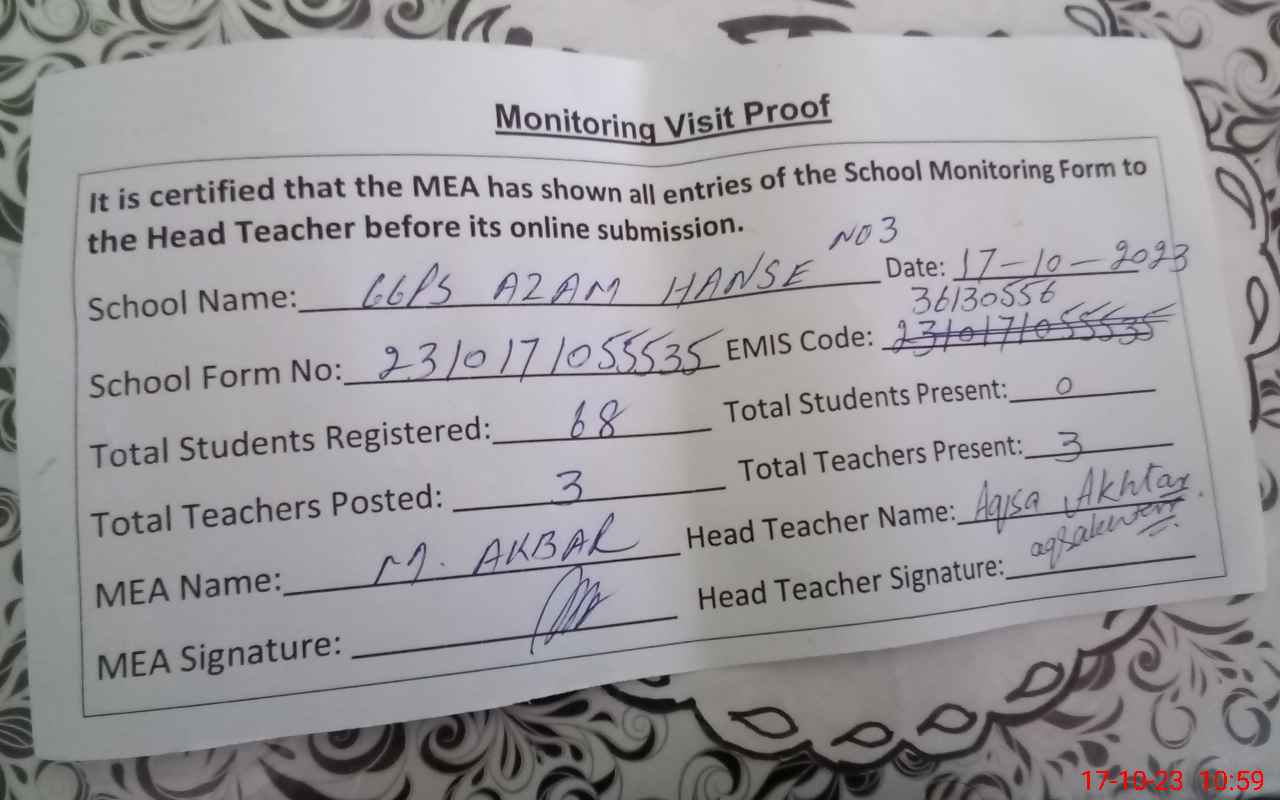 Monitoring Visit Proof
It is certified that the MEA has shown all entries of the School Monitoring Form to
the Head Teacher before its online submission.
School Name: GGPS AZAM HANSE NO 3 Date: 17-10-2023
School Form No: 2310171055535 EMIS Code: 36130556 2310171055535
Total Students Registered: 68 Total Students Present: 0
Total Teachers Posted: 3 Total Teachers Present: 3
MEA Name: M. AKBAR Head Teacher Name: Aqsa Akhtar.
MEA Signature: Head Teacher Signature:
17-10-23 10:59